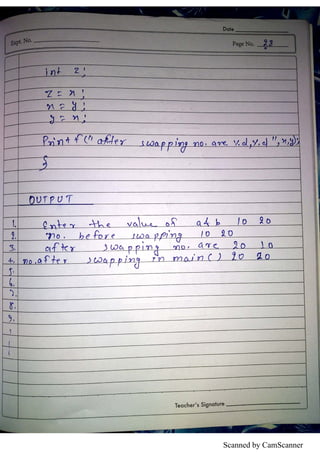 Date
Expt. No.
Page No. 28
int z;
z = x;
x = y;
y = x;
Printf(" after swapping no. are %d,%d ", x,y);
}
OUTPUT
1. Enter the value of a & b 10 20
2. no. before swapping 10 20
3. after swapping no. are 20 10
4. no. after swapping in main() 20 20
5.
6.
7.
8.
9.
Teacher's Signature
Scanned by CamScanner